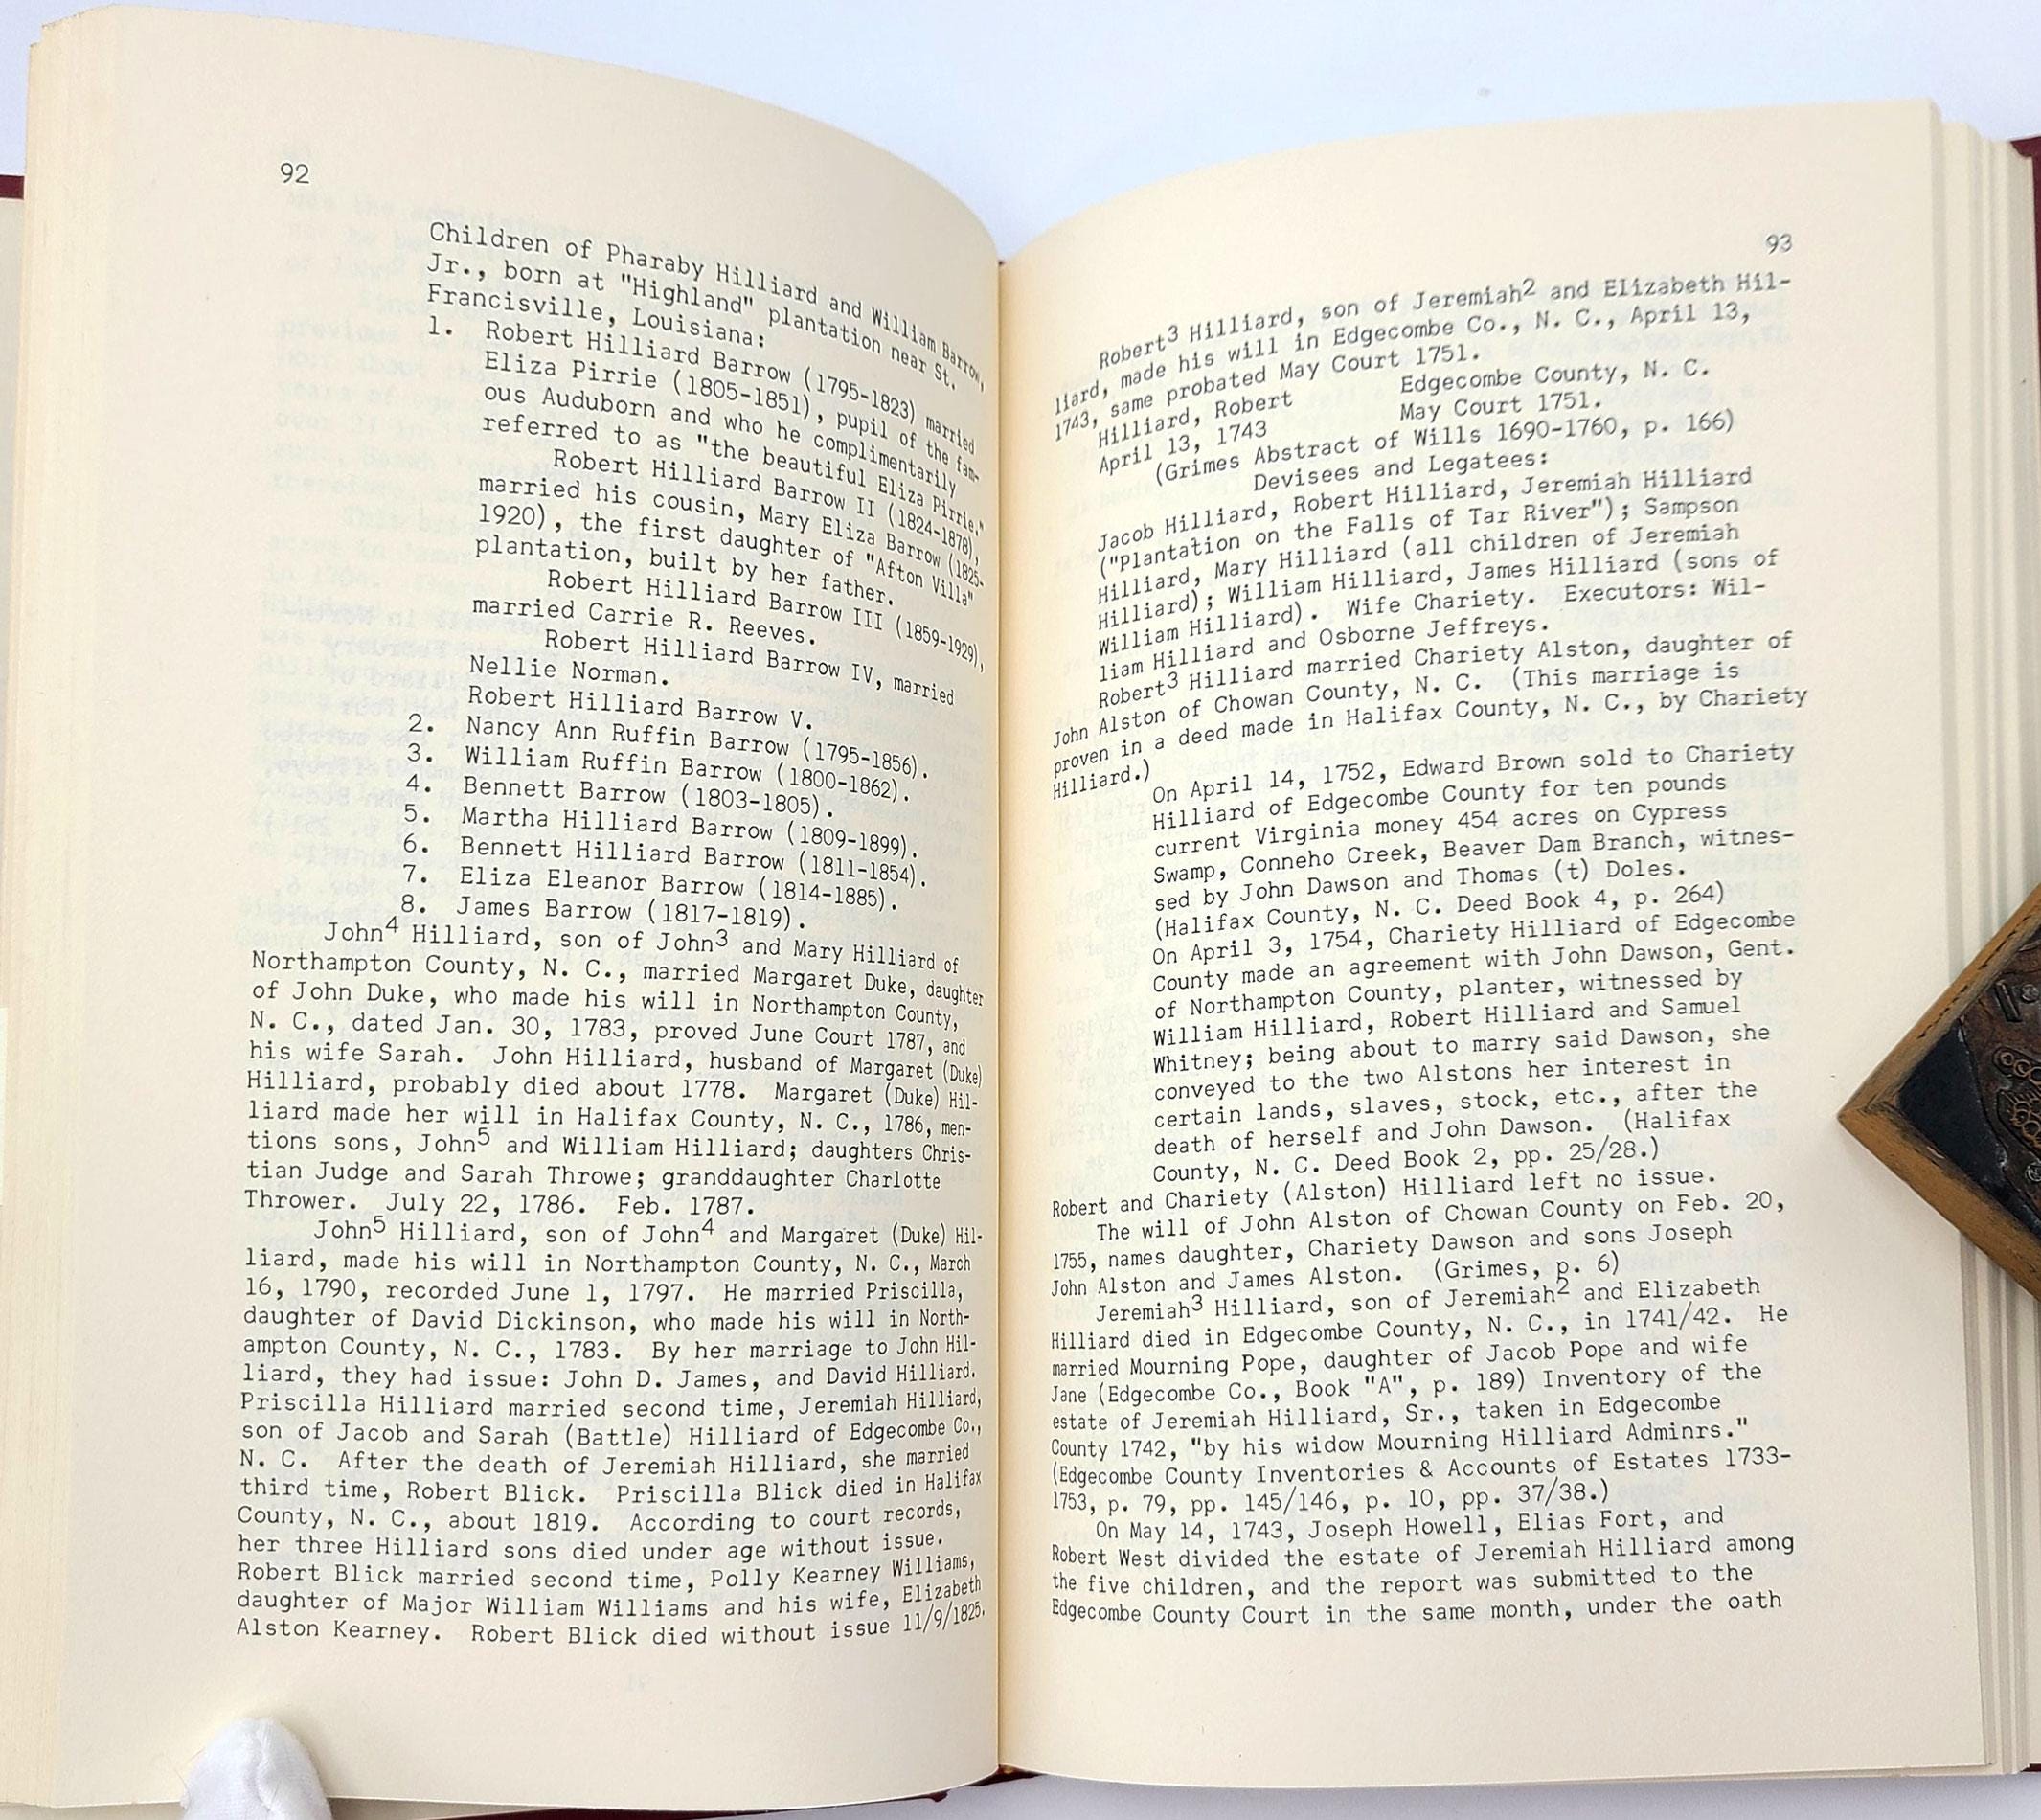 92
Children of Pharaby Hilliard and William Barrow,
Jr., born at "Highland" plantation near St.
Francisville, Louisiana:
1. Robert Hilliard Barrow (1795-1823) married
Eliza Pirrie (1805-1851), pupil of the fam-
ous Auduborn and who he complimentarily
referred to as "the beautiful Eliza Pirrie."
Robert Hilliard Barrow II (1824-1878),
married his cousin, Mary Eliza Barrow (1825-
1920), the first daughter of "Afton Villa"
plantation, built by her father.
Robert Hilliard Barrow III (1859-1929),
married Carrie R. Reeves.
Robert Hilliard Barrow IV, married
Nellie Norman.
Robert Hilliard Barrow V.
2. Nancy Ann Ruffin Barrow (1795-1856).
3. William Ruffin Barrow (1800-1862).
4. Bennett Barrow (1803-1805).
5. Martha Hilliard Barrow (1809-1899).
6. Bennett Hilliard Barrow (1811-1854).
7. Eliza Eleanor Barrow (1814-1885).
8. James Barrow (1817-1819).
John4 Hilliard, son of John3 and Mary Hilliard of
Northampton County, N. C., married Margaret Duke, daughter
of John Duke, who made his will in Northampton County,
N. C., dated Jan. 30, 1783, proved June Court 1787, and
his wife Sarah. John Hilliard, husband of Margaret (Duke)
Hilliard, probably died about 1778. Margaret (Duke) Hil-
liard made her will in Halifax County, N. C., 1786, men-
tions sons, John5 and William Hilliard; daughters Chris-
tian Judge and Sarah Throwe; granddaughter Charlotte
Thrower. July 22, 1786. Feb. 1787.
John5 Hilliard, son of John4 and Margaret (Duke) Hil-
liard, made his will in Northampton County, N. C., March
16, 1790, recorded June 1, 1797. He married Priscilla,
daughter of David Dickinson, who made his will in North-
ampton County, N. C., 1783. By her marriage to John Hil-
liard, they had issue: John D. James, and David Hilliard.
Priscilla Hilliard married second time, Jeremiah Hilliard,
son of Jacob and Sarah (Battle) Hilliard of Edgecombe Co.,
N. C. After the death of Jeremiah Hilliard, she married
third time, Robert Blick. Priscilla Blick died in Halifax
County, N. C., about 1819. According to court records,
her three Hilliard sons died under age without issue.
Robert Blick married second time, Polly Kearney Williams,
daughter of Major William Williams and his wife, Elizabeth
Alston Kearney. Robert Blick died without issue 11/9/1825.
93
Robert3 Hilliard, son of Jeremiah2 and Elizabeth Hil-
liard, made his will in Edgecombe Co., N. C., April 13,
1743, same probated May Court 1751.
Hilliard, Robert Edgecombe County, N. C.
April 13, 1743 May Court 1751.
(Grimes Abstract of Wills 1690-1760, p. 166)
Devisees and Legatees:
Jacob Hilliard, Robert Hilliard, Jeremiah Hilliard
("Plantation on the Falls of Tar River"); Sampson
Hilliard, Mary Hilliard (all children of Jeremiah
Hilliard); William Hilliard, James Hilliard (sons of
William Hilliard). Wife Chariety. Executors: Wil-
liam Hilliard and Osborne Jeffreys.
Robert3 Hilliard married Chariety Alston, daughter of
John Alston of Chowan County, N. C. (This marriage is
proven in a deed made in Halifax County, N. C., by Chariety
Hilliard.)
On April 14, 1752, Edward Brown sold to Chariety
Hilliard of Edgecombe County for ten pounds
current Virginia money 454 acres on Cypress
Swamp, Conneho Creek, Beaver Dam Branch, witnes-
sed by John Dawson and Thomas (t) Doles.
(Halifax County, N. C. Deed Book 4, p. 264)
On April 3, 1754, Chariety Hilliard of Edgecombe
County made an agreement with John Dawson, Gent.
of Northampton County, planter, witnessed by
William Hilliard, Robert Hilliard and Samuel
Whitney; being about to marry said Dawson, she
conveyed to the two Alstons her interest in
certain lands, slaves, stock, etc., after the
death of herself and John Dawson. (Halifax
County, N. C. Deed Book 2, pp. 25/28.)
Robert and Chariety (Alston) Hilliard left no issue.
The will of John Alston of Chowan County on Feb. 20,
1755, names daughter, Chariety Dawson and sons Joseph
John Alston and James Alston. (Grimes, p. 6)
Jeremiah3 Hilliard, son of Jeremiah2 and Elizabeth
Hilliard died in Edgecombe County, N. C., in 1741/42. He
married Mourning Pope, daughter of Jacob Pope and wife
Jane (Edgecombe Co., Book "A", p. 189) Inventory of the
estate of Jeremiah Hilliard, Sr., taken in Edgecombe
County 1742, "by his widow Mourning Hilliard Adminrs."
(Edgecombe County Inventories & Accounts of Estates 1733-
1753, p. 79, pp. 145/146, p. 10, pp. 37/38.)
On May 14, 1743, Joseph Howell, Elias Fort, and
Robert West divided the estate of Jeremiah Hilliard among
the five children, and the report was submitted to the
Edgecombe County Court in the same month, under the oath